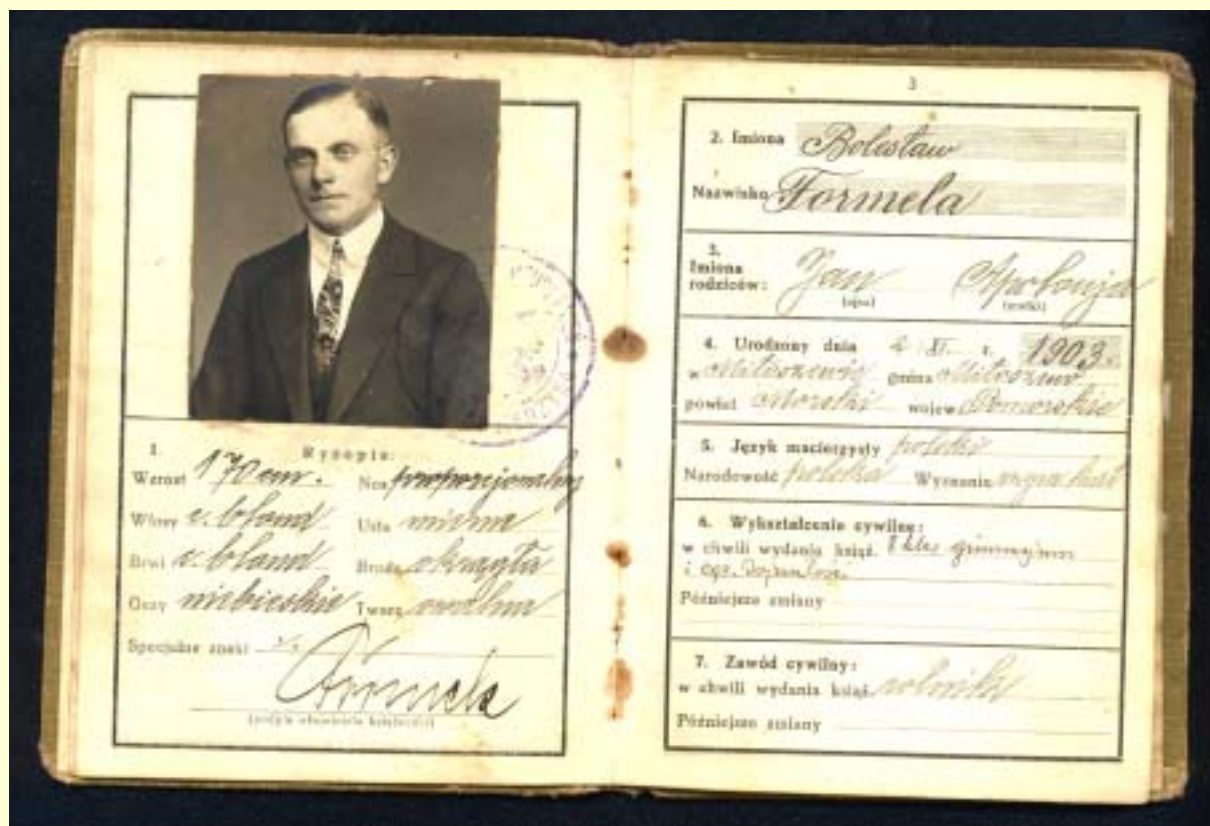 1. Rysopis:
Wzrost 170 cm. Nos proporcjonalny
Włosy c. blond Usta mierne
Brwi c. blond Broda okrągła
Oczy niebieskie Twarz owalna
Specjalne znaki
Formela
(podpis właściciela książeczki)
3
2. Imiona Bolesław
Nazwisko Formela
3.
Imiona
rodziców: Jan Apolonja
(ojca) (matki)
4. Urodzony dnia 2 XI. r. 1903.
w gmina
powiat Morski wojew. Pomorskie
5. Język macierzysty polski
Narodowość polska Wyznanie rzym. kat
6. Wykształcenie cywilne:
w chwili wydania książ. 8 kl. gimnazjum
i egz. dojrzałości
Późniejsze zmiany
7. Zawód cywilny:
w chwili wydania książ. rolnik
Późniejsze zmiany